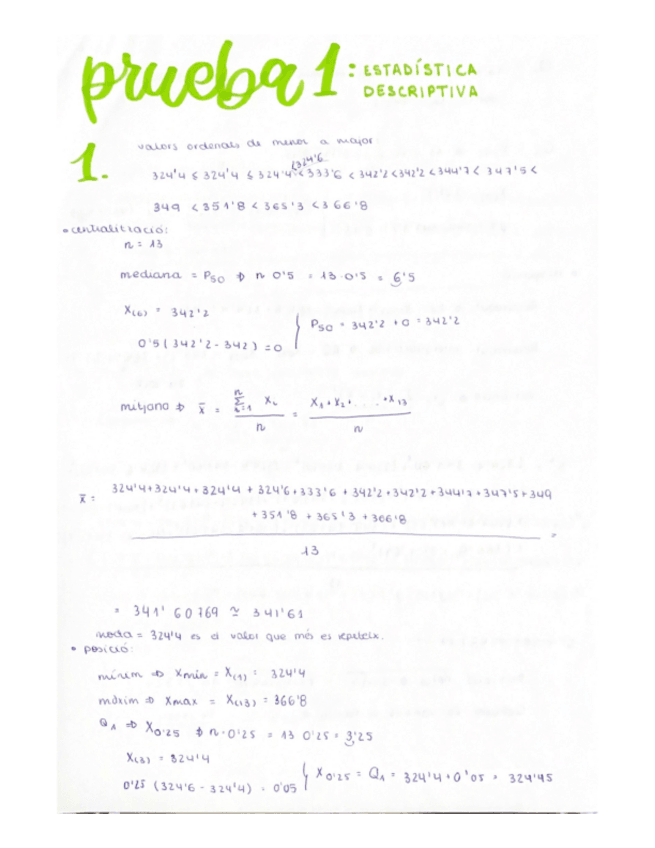 prueba 1: ESTADÍSTICA
DESCRIPTIVA
1.
valors ordenats de menor a major
<324'6
324'4 ≤ 324'4 ≤ 324'4 < 333'6 < 342'2 < 342'2 < 344'7 < 347'5 <
349 < 351'8 < 365'3 < 366'8
• centralització:
n = 13
mediana = P50 ⇒ n 0'5 = 13 · 0'5 = 6'5
X(6) = 342'2
0'5 (342'2 - 342) = 0
P50 = 342'2 + 0 = 342'2
mitjana ⇒ x̄ = Σ Xi / n = X1 + X2 + .... + X13 / n
x̄ = 324'4 + 324'4 + 324'4 + 324'6 + 333'6 + 342'2 + 342'2 + 344'7 + 347'5 + 349
+ 351'8 + 365'3 + 366'8
13
=
= 341'60769 ≃ 341'61
moda = 324'4 es el valor que més es repeteix.
• posició:
mínim ⇒ Xmin = X(1) = 324'4
màxim ⇒ Xmax = X(13) = 366'8
Q1 ⇒ X0'25 ⇒ n · 0'25 = 13 0'25 = 3'25
X(3) = 324'4
0'25 (324'6 - 324'4) = 0'05
X0'25 = Q1 = 324'4 + 0'05 = 324'45